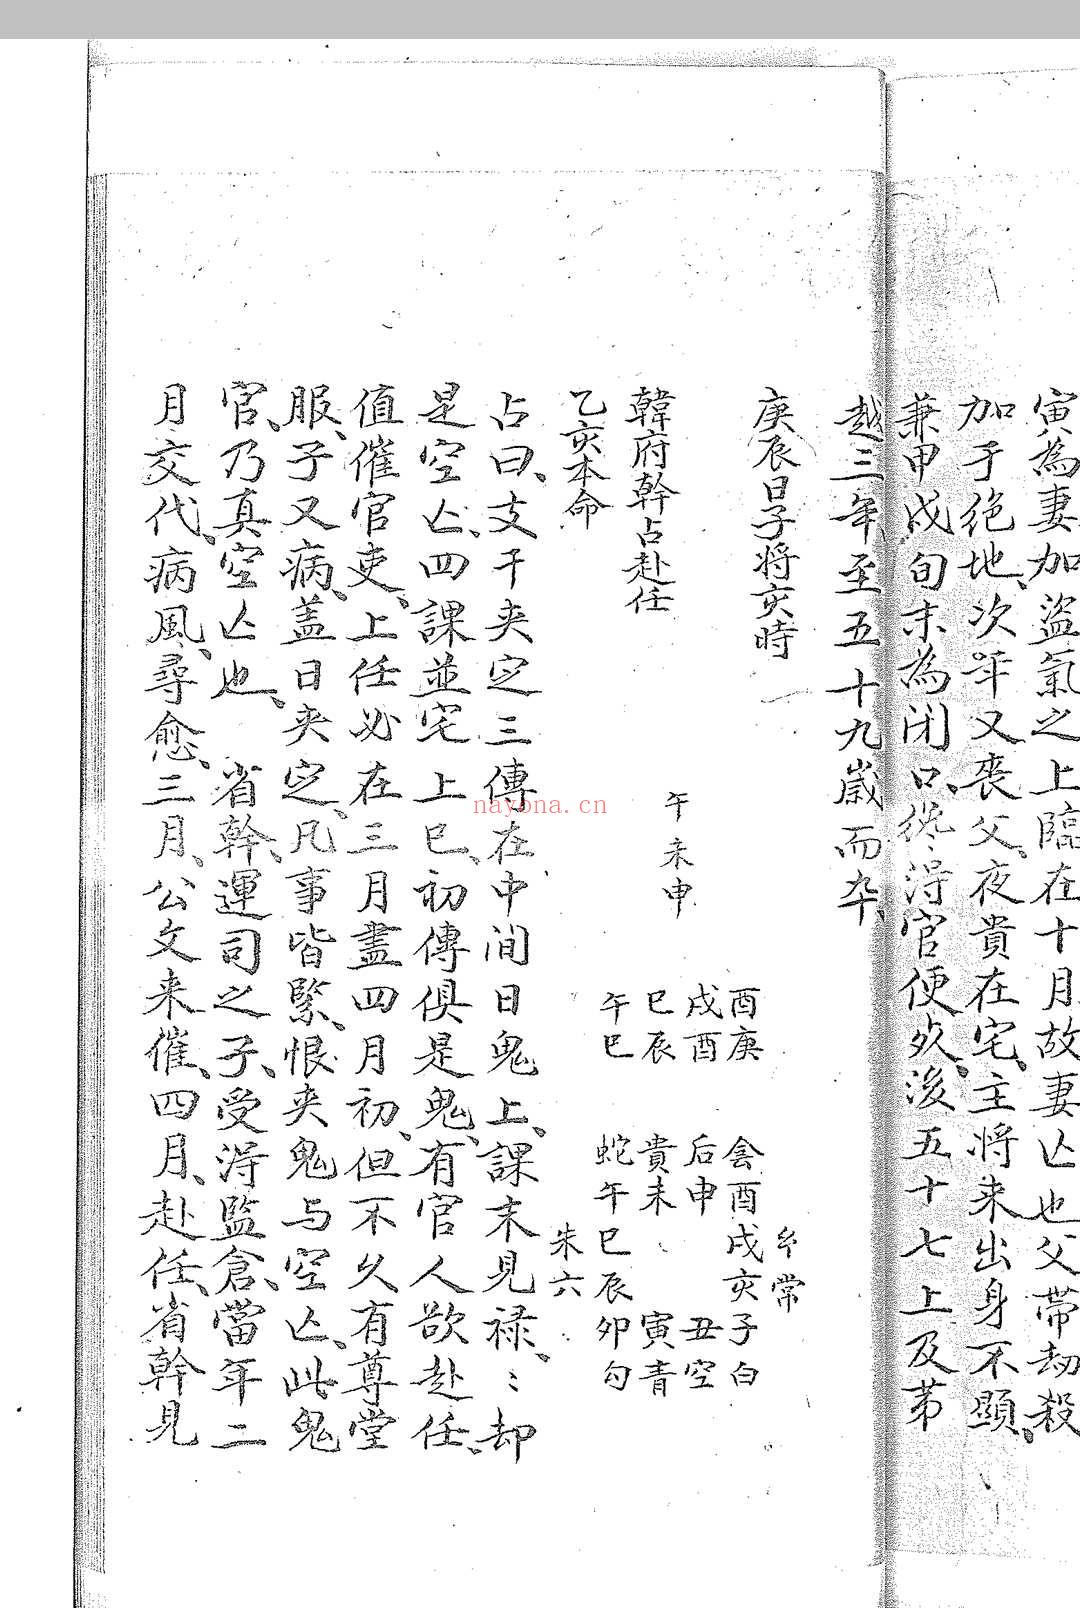 寅為妻加盜氣之上臨在十月故妻亾也父帶刼殺
加于绝地、次年又喪父、夜貴在宅、主將来出身不顯、
兼甲戌旬末為闭口、終淂官便歿、後五十七上及苐
越三年至五十九歳而卒、
庚辰日子將亥時
韓府幹占赴任
乙亥本命
午未申
酉庚
戌酉
巳辰
午巳
常
酉戌亥子白
后申 丑空
貴未 寅青
蛇午巳辰卯勾
朱六
占曰、支干夾定三傳在中间日鬼上、課末見禄、〻却
是空亾、四課並宅上巳、初傳俱是鬼、有官人欲赴任、
值催官吏、上任必在三月盡四月初、但不久有尊堂
服、子又病、盖日夾定、凡事皆緊、恨夾鬼与空亾、此鬼
官、乃真空亾也、 省幹、運司之子、受淂監倉、當年二
月交代、病風、尋愈、三月、公文来催、四月、赴任、省幹見
nayona.cn